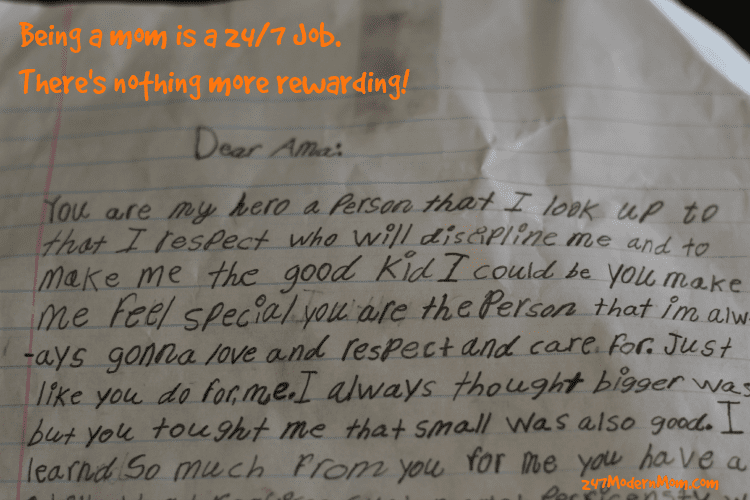 Being a mom is a 24/7 Job.
There's nothing more rewarding!
Dear Ama:
You are my hero a Person that I look up to
that I respect who will discipline me and to
make me the good kid I could be you make
me feel special you are the Person that im alw
-ays gonna love and respect and care for. Just
like you do for,me. I always thought bigger was
but you tought me that small was also good. I
learnd so much from you for me you have a
247ModernMom.com